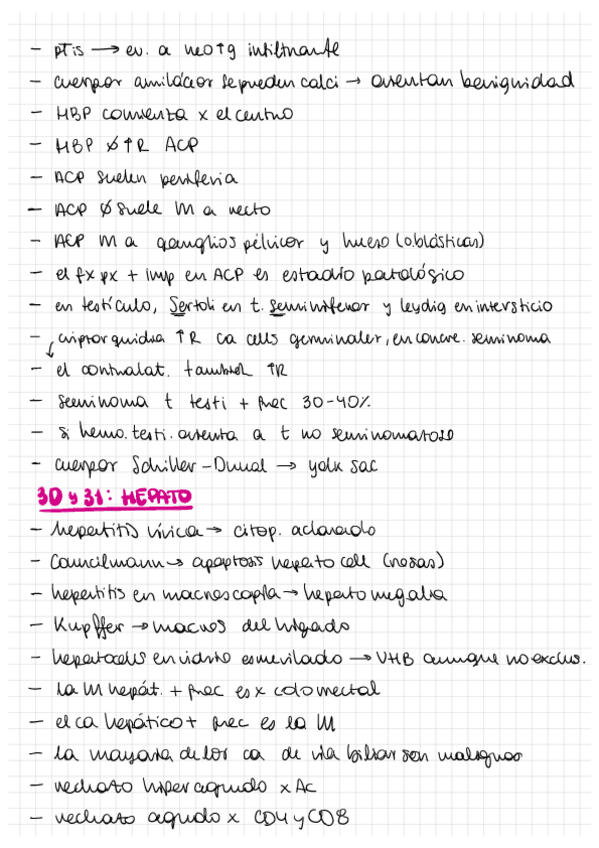 - ptis → ev. a neo ↑g infiltrante
- cuerpos amiláceos se pueden calci → orientan benignidad
- HBP comienza x el centro
- HBP Ø ↑R ACP
- ACP suelen periferia
- ACP Ø suele M a recto
- ACP M a ganglios pélvicos y hueso (oblásticas)
- el fx px + imp en ACP es estadio patológico
- en testículo, Sertoli en t. seminíferos y leydig en intersticio
- criptorquidia ↑R ca cells germinales, en concre. seminoma
- el contralat. también ↑R
- seminoma t testi + frec 30-40%
- si hemo. testi. orienta a t no seminomatoso
- cuerpos Schiller-Duval → yolk sac
30 y 31: HEPATO
- hepatitis vírica → citop. aclarado
- Councilmann → apoptosis hepato cell (rosas)
- hepatitis en macroscopía → hepatomegalia
- Kupffer → macros del hígado
- hepatocells en vidrio esmerilado → VHB aunque no exclus.
- la M hepát. + frec es x colorrectal
- el ca hepático + frec es la M
- la mayoría de los ca de vía biliar son malignos
- rechazo hiperagudo x Ac
- rechazo agudo x CD4 y CD8